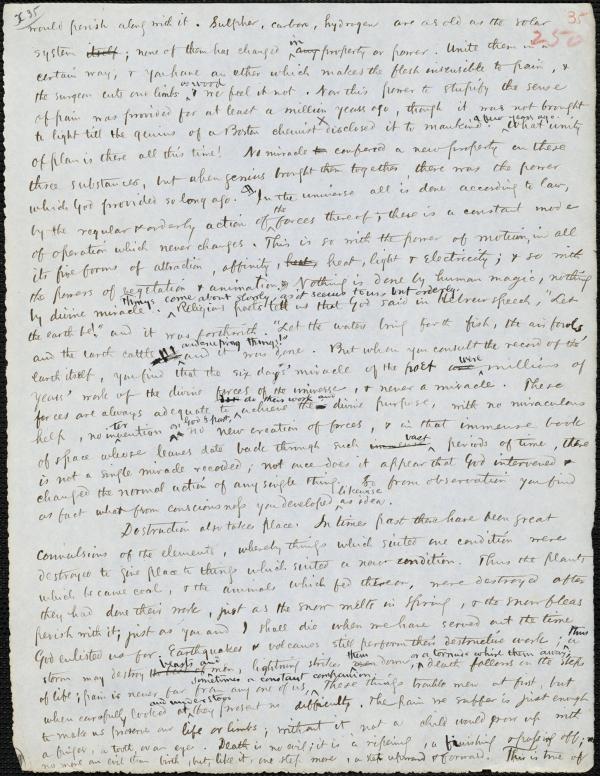 x35
35
250
would perish along with it. Sulpher, carbon, hydrogen are as old as the solar
system itself; none of them has changed in any property or power. Unite them in a
certain way, & you have an ether which makes the flesh insensible to pain, &
the surgeon cuts our limbs as wood & we feel it not. Now this power to stupify the sense
of pain was provided for at least a million years ago, though it was not brought
to light till the genius of a Boston chemist x disclosed it to mankind a few years ago. What unity
of plan is there all this time! No miracle to confered a new property on these
three substances, but when genius brought them together there was the power
which God provided so long ago. In the universe all is done according to law,
by the regular & orderly action of the forces thereof; there is a constant mode
of operation which never changes. This is so with the power of motion, in all
its five forms of attraction, affinity, heat, heat, light & electricity; & so with
the powers of vegetation & animation. Nothing is done by human magic, nothing
by divine miracle. things come about slowly as it seems to us but orderly.
Religious poets tell us that God said in Hebrew speech, "Let
the earth be!" and it was forthwith. "Let the waters bring forth fish, the air fowls
and the earth cattle and creeping things!" and it was done. But when you consult the record of the
earth itself, you find that the six days' miracle of the poet are were millions of
years' work of the divine forces of the universe, & never a miracle. These
forces are always adequate to do their work and achieve the divine purpose, with no miraculous
help, no intervention or God's part, no new creation of forces, & in that immense book
of space whose leaves date back through such vast periods of time, there
is not a single miracle recorded; not once does it appear that God intervened &
changed the normal action of any single thing. So from observation you find
as fact what from consciousness you developed likewise as idea.
Destruction also takes place. In times past there have been great
convulsions of the elements, whereby things which suited one condition were
destroyed to give place to things which suited a new condition. Thus the plants
which became coal, & the animals which fed thereon, were destroyed after
they had done their work, just as the snow melts in Spring, & the snow fleas
perish with it; just as you and I shall die when we have served out the time
God enlisted us for. Earthquakes & volcanos still perform their destructive work; thus a
storm may destroy beasts and men, lightning strikes them down, or a tornado whirl them away; death follows in the steps
of life; pain is never far from any one of us, sometimes a constant companion. These things trouble men at first, but
when carefully looked at and understood they present no difficulty. The pain we suffer is just enough
to make us preserve our life or limbs; without it, not a child would grow up with
a finger, a tooth, or an eye. Death is no evil; it is a ripening, a finishing off;
no more an evil than birth, but, like it, one step more, a step upward & forward. This is true of